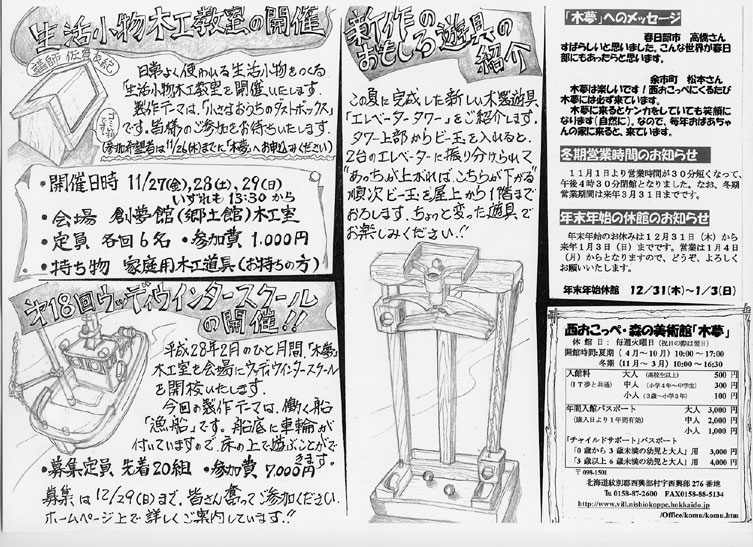 生活小物木工教室の開催
講師 佐藤友紀
日常よく使われる生活小物をつくる
「生活小物木工教室」を開催いたします。
製作テーマは、「小さなおうちのダストボックス」
です。皆様のご参加をお待ちいたします。
(参加希望者は11/26(木)までに「木夢」へお申込みください)
・開催日時 11/27(金),28(土),29(日)
いずれも 13:30から
・会場 創夢館(郷土館)木工室
・定員 各回6名 ・参加費 1,000円
・持ち物 家庭用木工道具(お持ちの方)
才18回ウッディウインタースクール
の開催!!
平成28年2月のひと月間、「木夢」
木工室を会場にウッディウインタースクール
を開校いたします。
今回の製作テーマは、働く船
「漁船」です。船底に車輪が
付いていますので、床の上で遊ぶことがで
きます。
・募集定員 先着20組 ・参加費 7,000円
募集は12/29(日)まで。皆さん奮ってご参加ください。
ホームページ上で詳しくご案内しています!!
新作の
おもしろ遊具の
紹介
この夏に完成した新しい木製遊具
「エレベータータワー」をご紹介します。
タワー上部からビー玉を入れると、
2台のエレベーターに振り分けられて
"あっちが上がれば、こちらが下がる"
順次ビー玉を屋上から1階まで
おろします。ちょっと変った遊具で
お楽しみください!!
「木夢」へのメッセージ
春日部市 高橋さん
すばらしいと思いました。こんな世界が春日
部にもあったらと思います。
余市町 松本さん
木夢は楽しいです!西おこっぺにくるたび
木夢には必ず来ています。
木夢に来るとケンカをしていても笑顔に
なります(自然に)。なので、毎年おばあちゃ
んの家に来ると、来ています。
冬期営業時間のお知らせ
11月1日より営業時間が30分短くなって、
午後4時30分閉館となりました。なお、冬期
営業期間は来年3月31日までです。
年末年始の休館のお知らせ
年末年始のお休みは12月31日(木)から
来年1月3日(日)までです。営業は1月4日
(月)からとなりますので、どうぞ、よろしく
お願いいたします。
年末年始休館 12/31(木)~1/3(日)
西おこっぺ・森の美術館「木夢」
休館日: 毎週火曜日(祝日の際は翌日)
開館時間:夏期 (4月~10月) 10:00~17:00
冬期 (11月~3月) 10:00~16:30
入館料 大人 (高校生以上) 500円
(IT夢と共通) 中人 (小学4年~中学生) 300円
小人 (3歳~小学3年) 100円
年間入館パスポート 大人 3,000円
(購入日より1年間有効) 中人 2,000円
小人 1,000円
「チャイルドサポート」パスポート
「0歳から3歳未満の幼児と大人」用 3,000円
「3歳以上6歳未満の幼児と大人」用 4,000円
〒098-1501
北海道紋別郡西興部村字西興部276番地
℡0158-87-2600 FAX0158-88-5134
http://www.vill.nishiokoppe.hokkaido.jp
/Office/komu/komu.htm